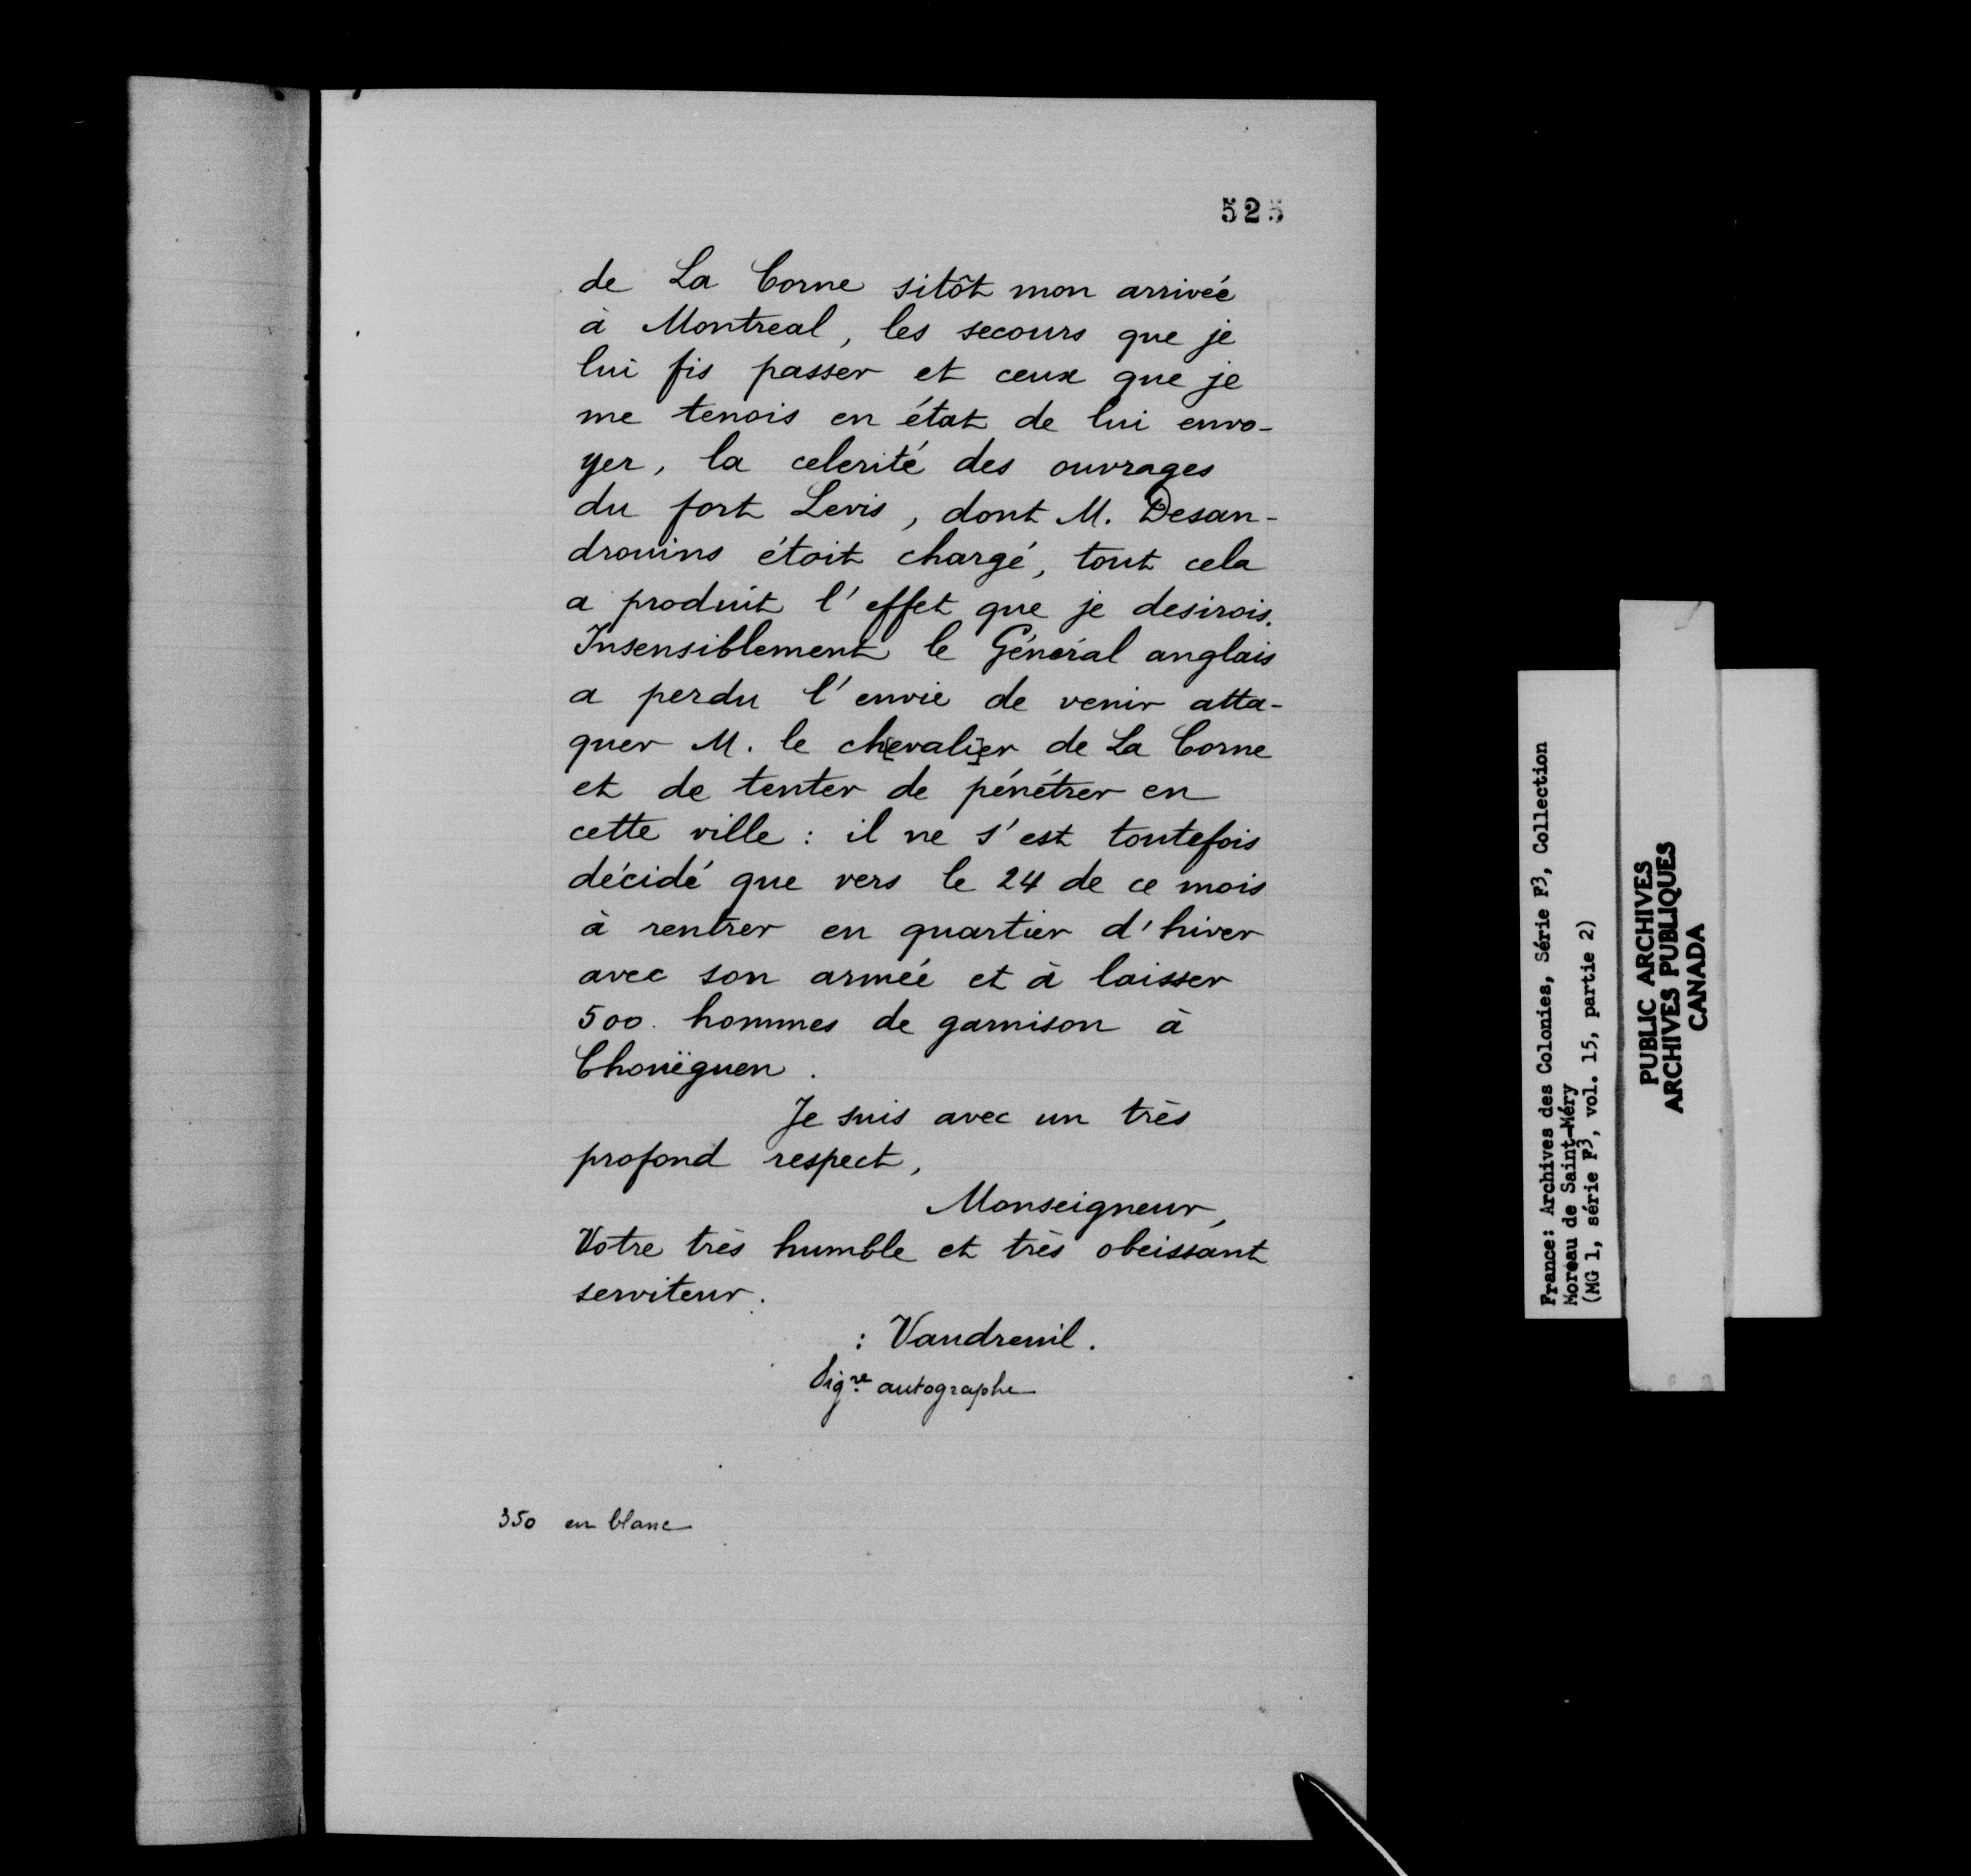 525
de La Corne sitôt mon arrivée
à Montreal, les secours que je
lui fis passer et ceux que je
me tenois en état de lui envo-
yer, la celerité des ouvrages
du fort Levis, dont M. Desan-
drouins étoit chargé, tout cela
a produit l'effet que je desirois.
Insensiblement le Général anglais
a perdu l'envie de venir atta-
quer M. le ch[evali]er de La Corne
et de tenter de pénétrer en
cette ville : il ne s'est toutefois
décidé que vers le 24 de ce mois
à rentrer en quartier d'hiver
avec son armée et à laisser
500 hommes de garnison à
Chouëguen.
Je suis avec un très
profond respect,
Monseigneur,
Votre très humble et très obeissant
serviteur.
: Vaudreuil.
Sigre autographe
350 en blanc
France: Archives des Colonies, Série F3, Collection
Moreau de Saint-Méry
(MG 1, série F3, vol. 15, partie 2)
PUBLIC ARCHIVES
ARCHIVES PUBLIQUES
CANADA